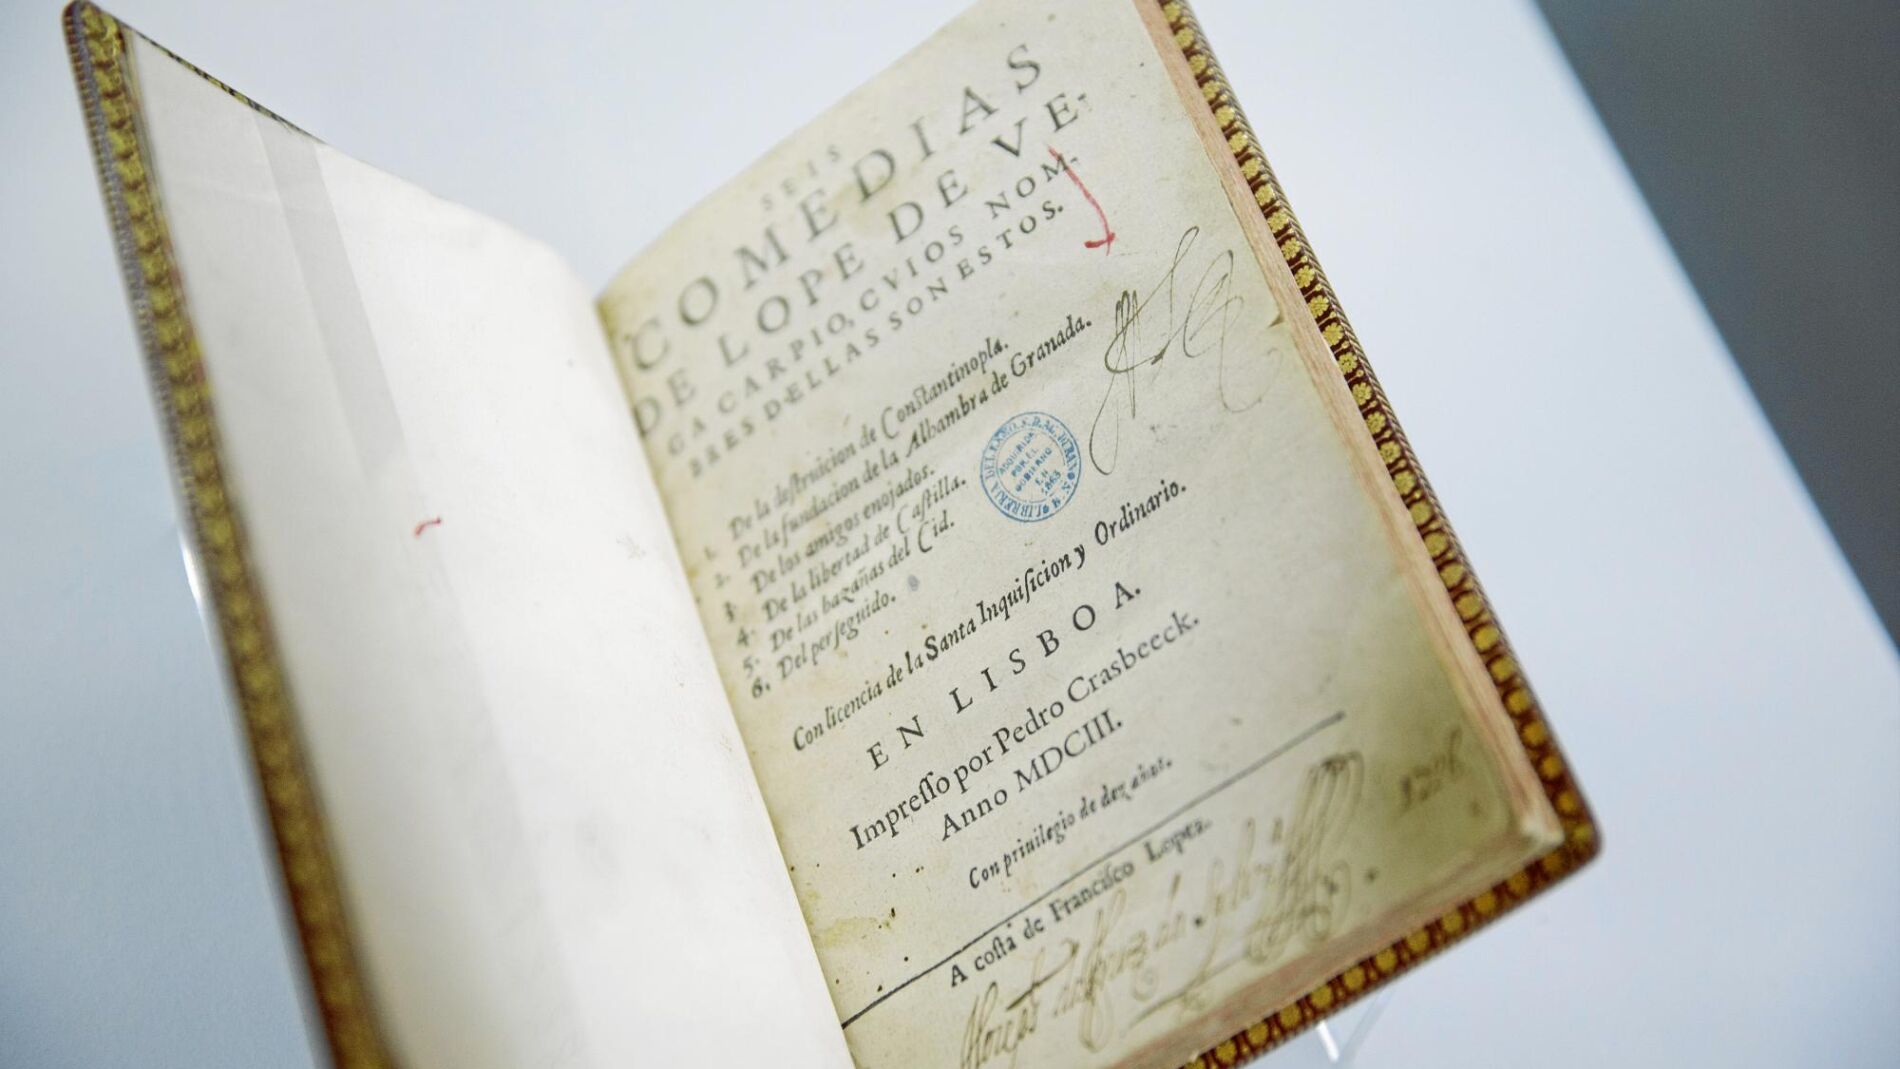 SEIS
COMEDIAS
DE LOPE DE VE-
GA CARPIO, CVIOS NOM-
BRES DELLAS SON ESTOS.
1. De la deſtruicion de Conſtantinopla.
2. De la fundacion de la Alhambra de Granada.
3. De los amigos enojados.
4. De la libertad de Caſtilla.
5. De las hazañas del Cid.
6. Del perſeguido.
LIBRERIA DEL EXMO. S. D. AG. DURAN
ADQUIRIDA
POR EL
GOBIERNO
EN
1863
Con licencia de la Santa Inquiſicion y Ordinario.
EN LISBOA.
Impreſſo por Pedro Crasbeeck.
Anno MDCIII.
Con priuilegio de dez años.
A coſta de Franciſco Lopez.